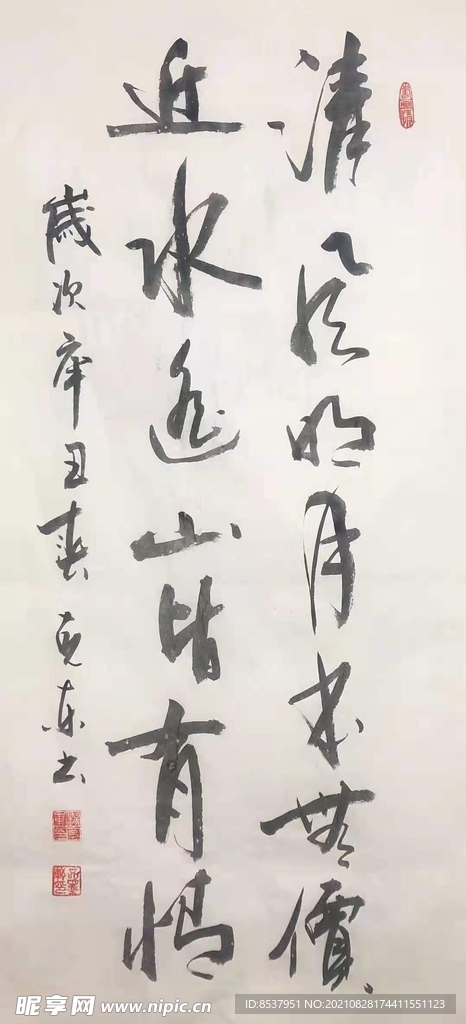 清风明月本无價
近水遠山皆有情
歲次辛丑春克東书
昵享网 www.nipic.cn
ID:8537951 NO:20210828174411551123